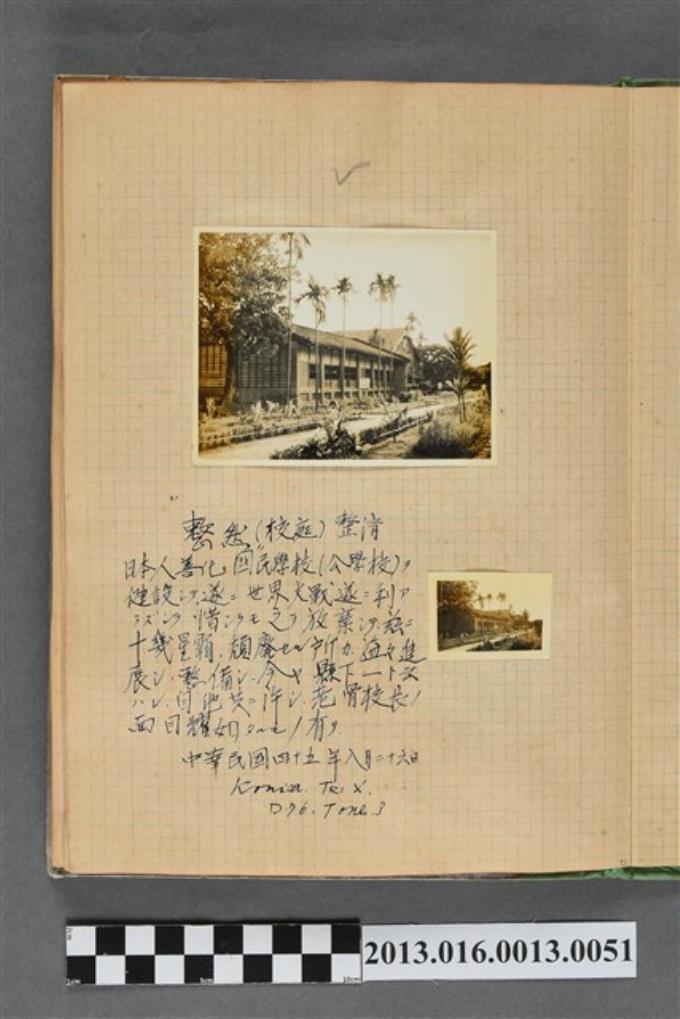 整然(校庭)整清
日本人善化国民學校(公學校)ヲ
健設シテ、遂ニ世界大戰遂ニ利ア
ラズシテ惜シクモ之ヲ放棄シテ、茲ニ
十幾星霜、頽廢セル所カ、益々進
展シ、整備シ、今ヤ縣下一ト云
ハレ、自他共ニ許シ、老骨校長ノ
面目耀如タルモノ有リ
中華民國四十五年八月二十六日
Konica. Tri X.
D76. Tone 3
2013.016.0013.0051
1cm 5cm 10cm